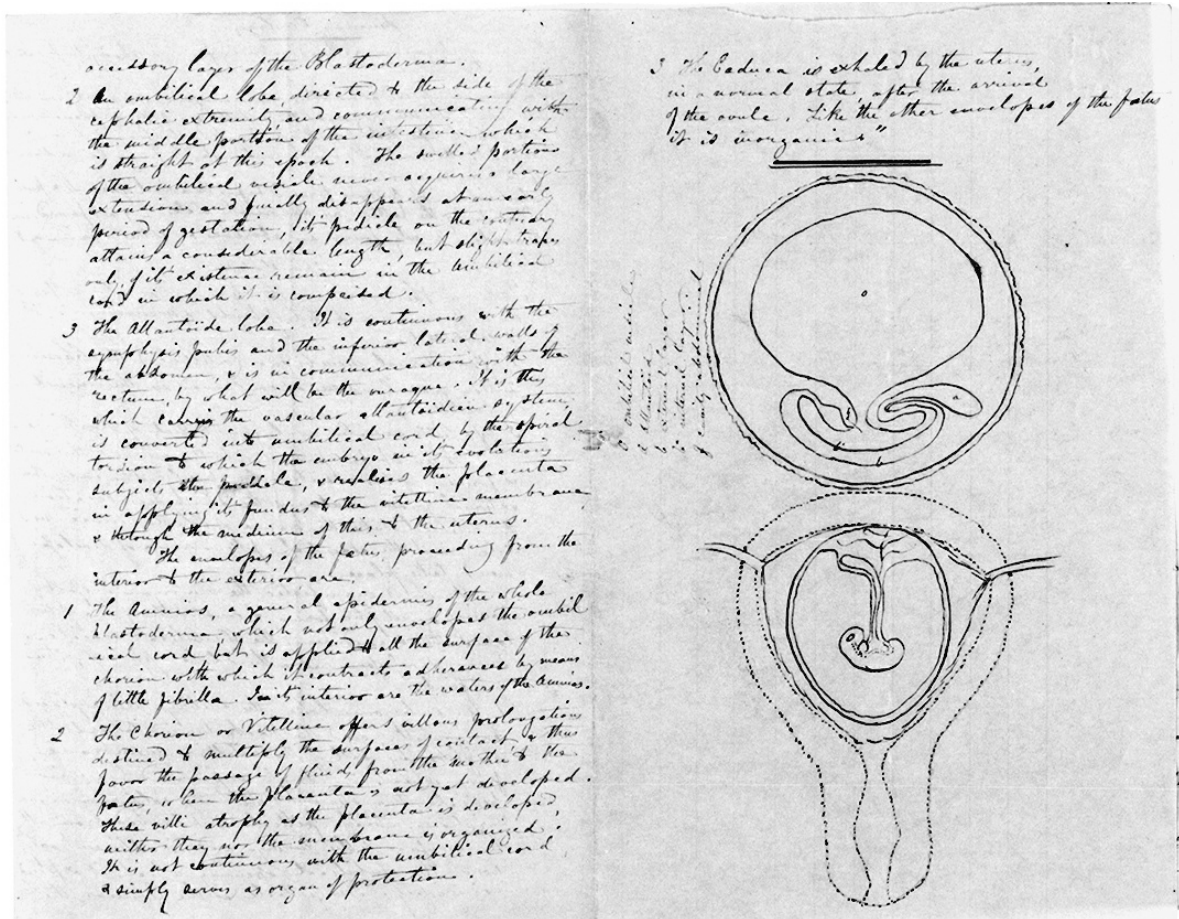 accessory layer of the Blastoderma.
2 An ombilical lobe, directed to the side of the
cephalic extremity and communicating with
the middle portion of the intestine which
is straight at this epoch. The swelled portion
of the ombilical visicle never acquires large
extension and finally disappears at an early
period of gestation, its pidicle on the contrary
attains a considerable length, but slight traces
only of its existence remain in the umbilical
cord in which it is comprised.
3 The Allantoide lobe. It is continuous with the
symphysis pubis and the inferior lateral walls of
the abdomen, & is in communication with the
rectum, by what will be the ouraque. It is this
which carries the vascular allantoidien system,
is converted into umbilical cord, by the spiral
torsion to which the embryo in its evolutions
subjects the pidicle, & realises the placenta
in applying its fundus to the vitelline membrane
& through the medium of this to the uterus.
The envelopes of the fœtus, proceeding from the
interior to the exterior are.
1 The Amnios, a general epidermis of the whole
blastoderma which not only envelopes the ombil
ical cord but is applied to all the surface of the
chorion with which it contracts adherances by means
of little fibrilla. In its interior are the waters of the Amnios.
2 The Chorion or Vitelline offers villous prolongations
destined to multiply the surfaces of contact & thus
favor the passage of fluids from the mother to the
fœtus, when the placenta is not yet developed.
These villi atrophy as the placenta is developed,
neither they nor the membrane is organized.
It is not continuous with the umbilical cord
& simply serves as organ of protection.
3 The Caduca is exhaled by the uterus,
in a normal state, after the arrival
of the ovule. Like the other envelopes of the fœtus
it is inorganic."
ombilic visicle
Allantoid
external layer
internal layer
cavity abdominal